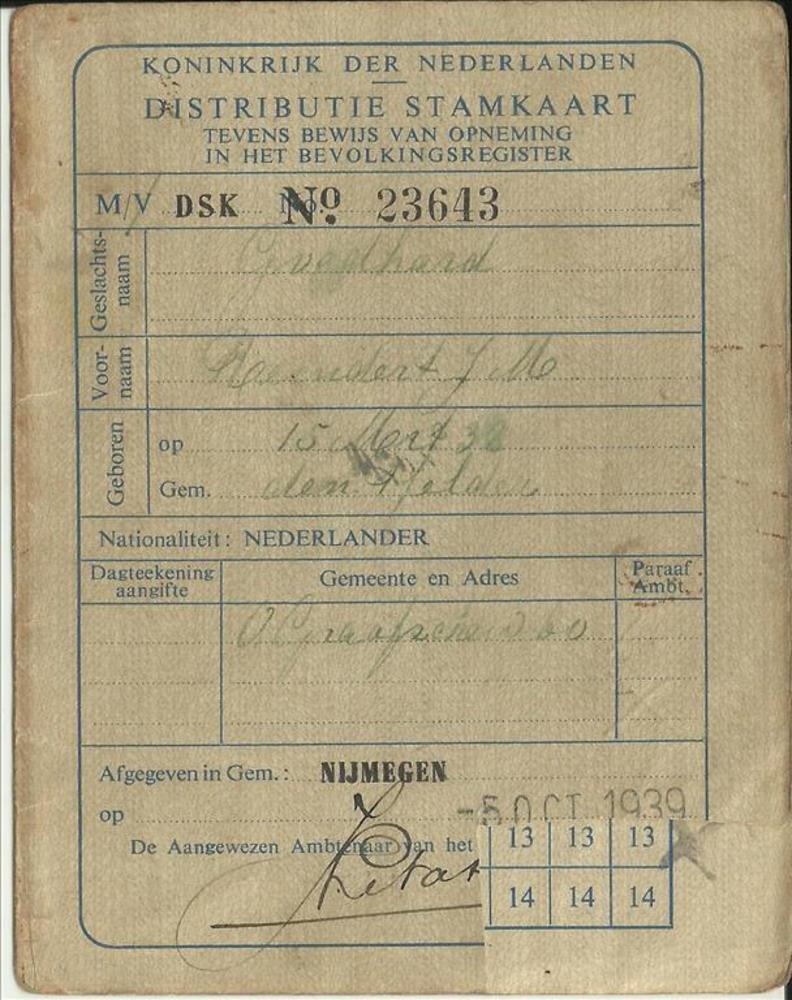 KONINKRIJK DER NEDERLANDEN
DISTRIBUTIE STAMKAART
TEVENS BEWIJS VAN OPNEMING
IN HET BEVOLKINGSREGISTER
M/V DSK No. 23643
Geslachts-
naam
Voor-
naam
J M
Geboren
op 15 Mrt 32
Gem. den Helder
Nationaliteit: NEDERLANDER
Dagteekening
aangifte
Gemeente en Adres
Paraaf
Ambt.
60
Afgegeven in Gem.: NIJMEGEN
op -5 OCT 1939
De Aangewezen Ambtenaar van het
13 13 13
14 14 14